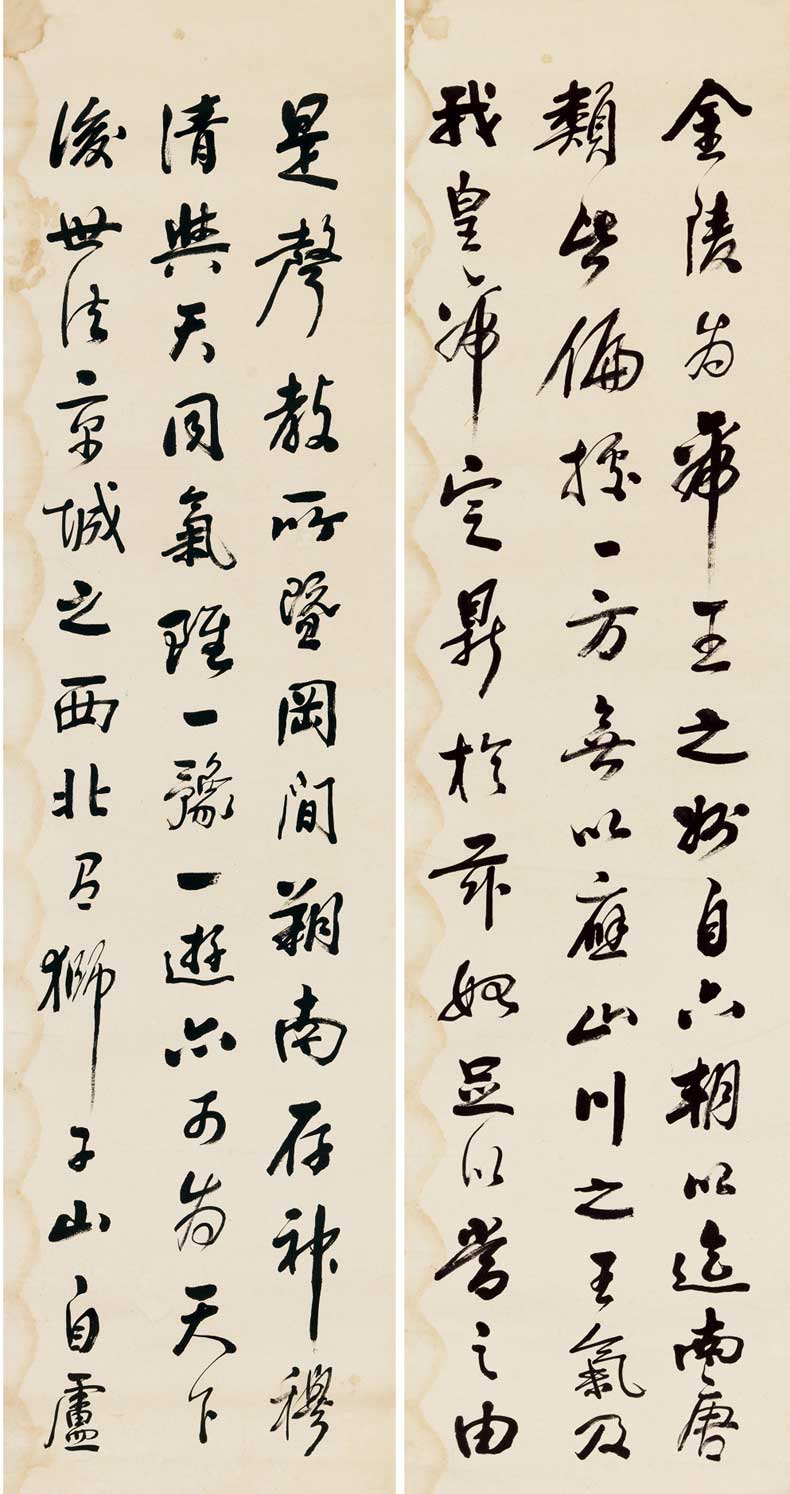 金陵為帝王之州自六朝以迄南唐
類皆偏據一方無以應山川之王氣及
我皇帝定鼎於茲始足以當之由
是聲教所暨岡間朔南存神穆
清與天同氣雖一豫一遊亦可為天下
後世法京城之西北有獅子山自盧